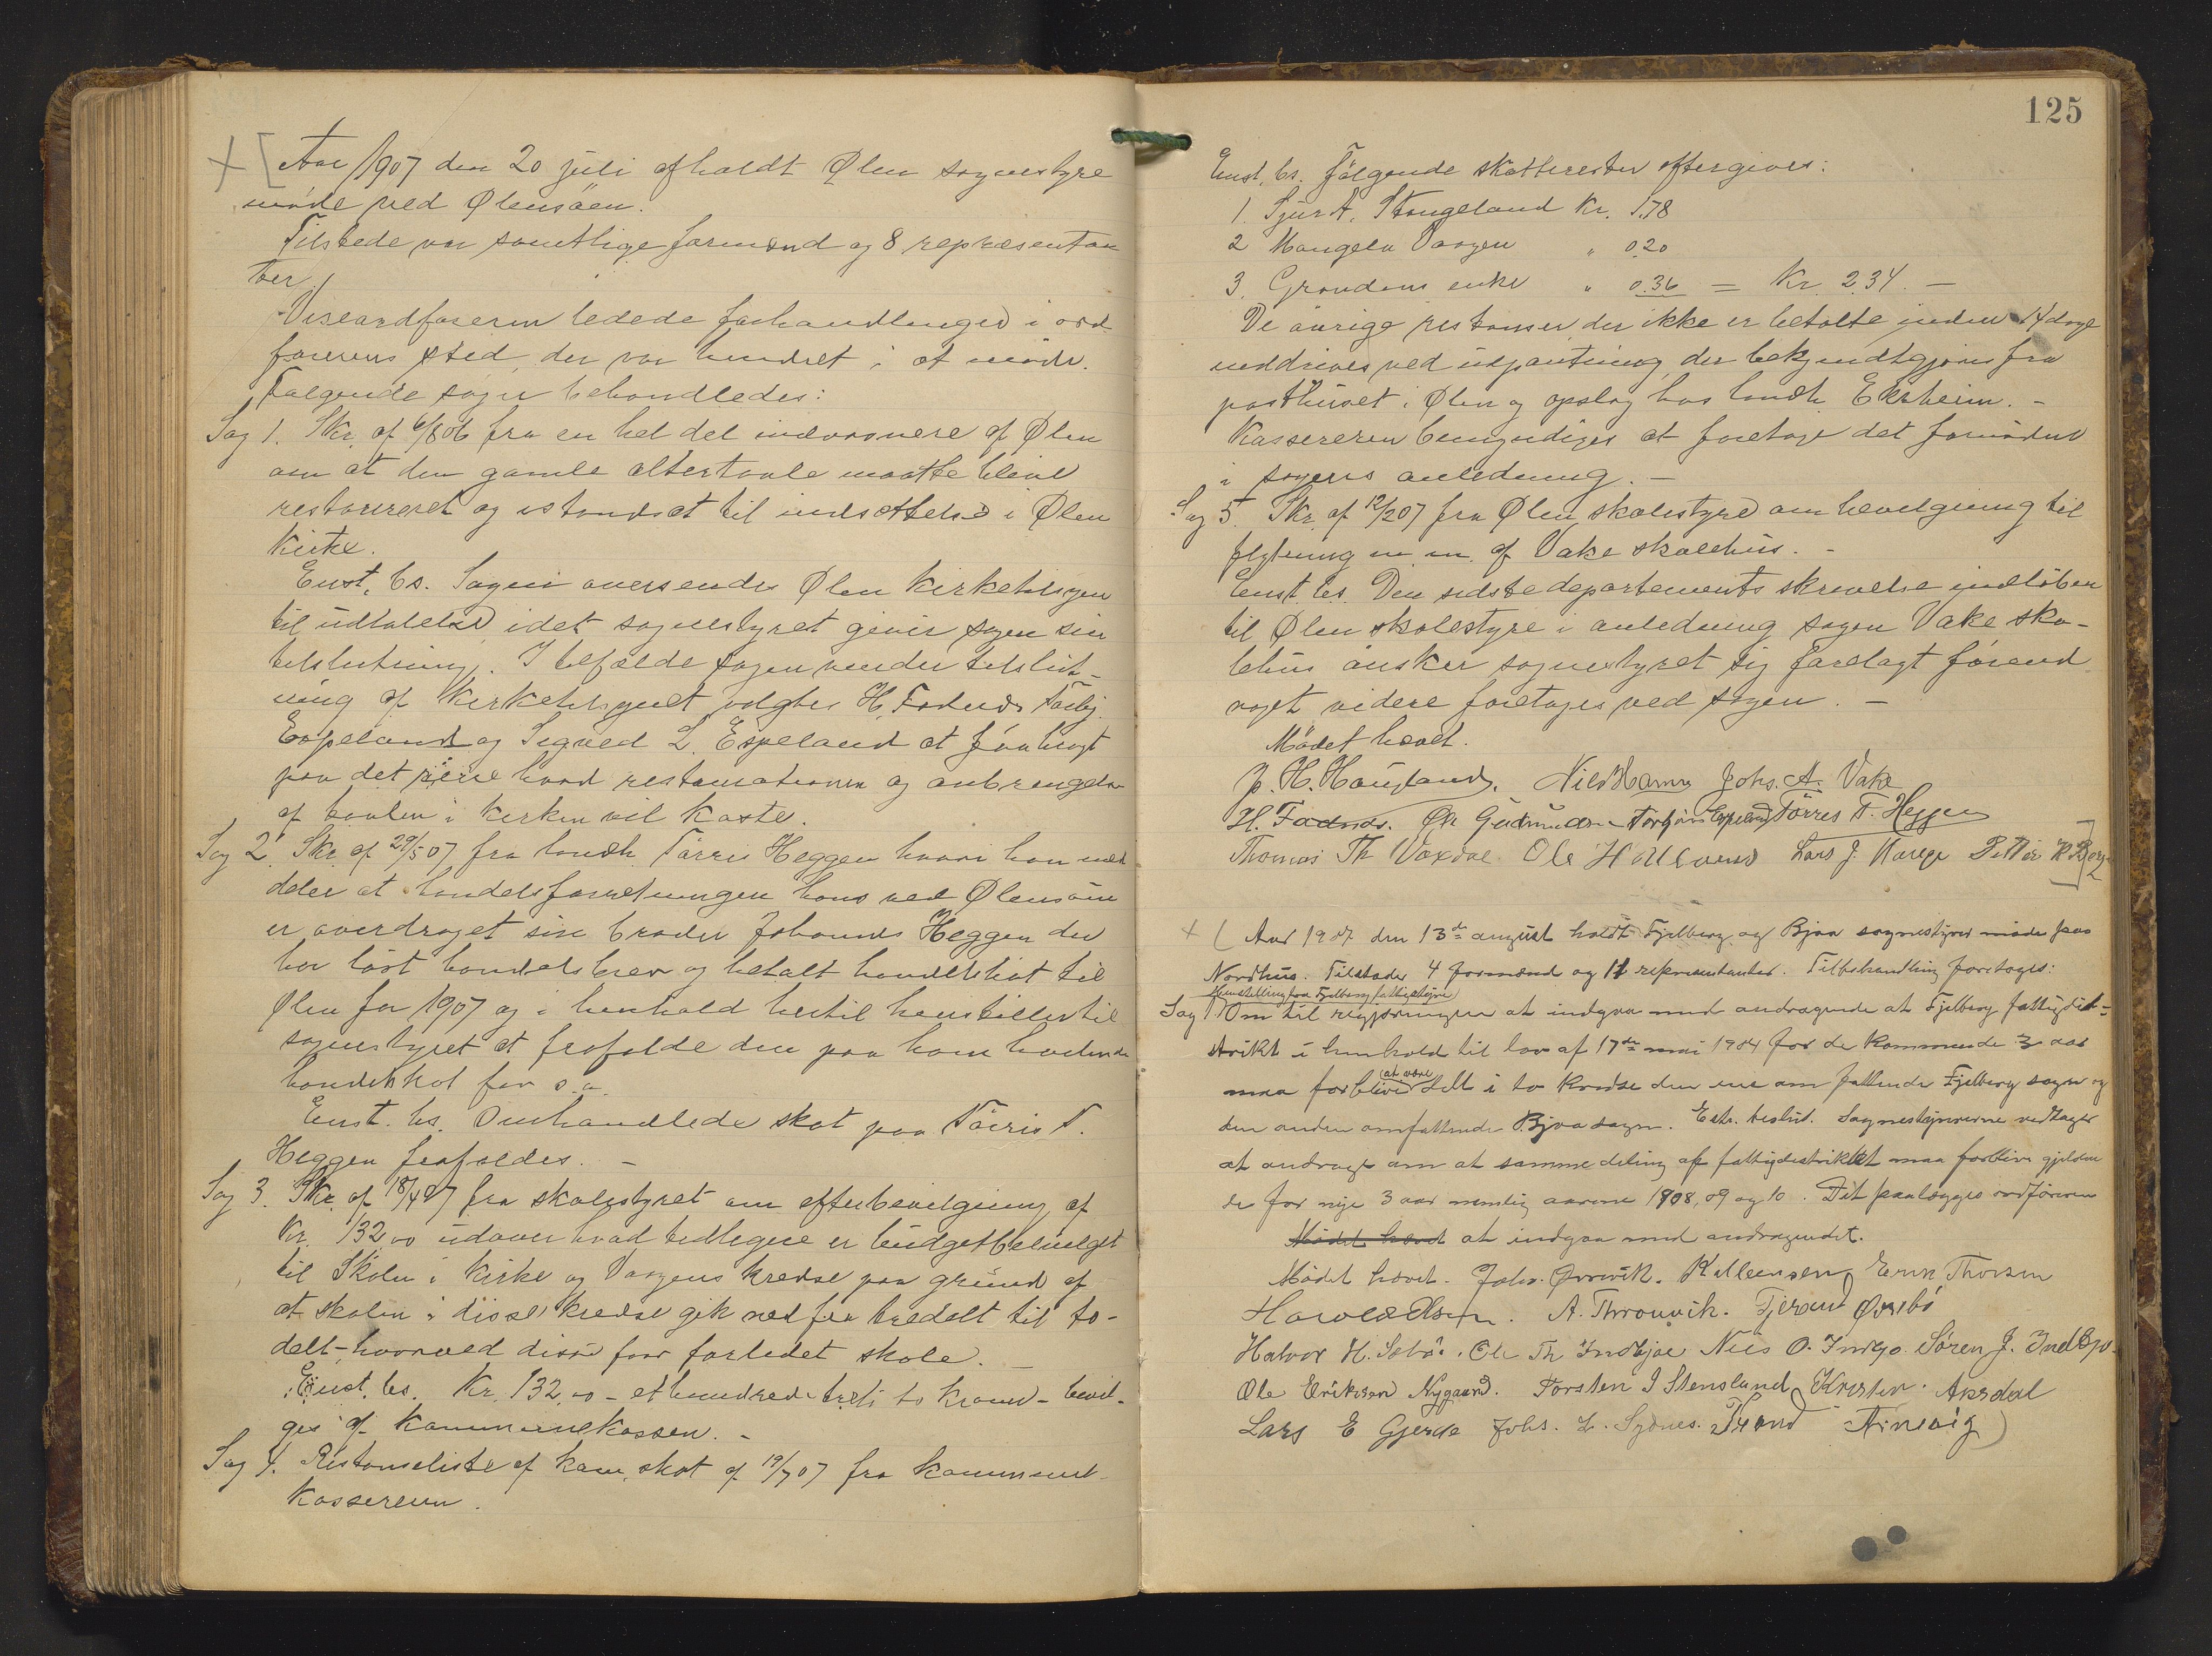 Aar 1907 den 20 juli afholdt Ølen sognestyre
möde ved Ølensöen.
Tilstede var samtlige formænd og 8 repræsentan
ter.
Viseordföreren ledede forhandlinger i ord
förerens sted, der var hindret i at möde.
Fölgende sager behandledes:
Sag 1. Skr. af 6/8 06 fra en hel del indvaanere af Ølen
om at den gamle altertavle maatte blive
restoureret og istandsat til indsættelse i Ølen
kirke.
Enst. bs. Sagen oversendes Ølen kirketilsyn
til udtalelse, idet sognestyret giver sagen sin
tilslutning. I tilfælde sagen vinder tilslut-
ning af kirketilsynet valgtes H. Fadnes, Torbj.
Espeland og Sigved L. Espeland at faa bragt
paa det rene hvad restaurationen og anbringelse
af tavlen i kirken vil koste.
Sag 2. Skr. af 29/5 07 fra landh. Törris Heggen hvori han med
deler at handelsforretningen hans ved Ølensöen
er overdraget sin broder Johannes Heggen der
har löst handelsbrev og betalt handelskat til
Ølen for 1907 og i henhold hertil henstiller til
sognestyret at frafalde den paa ham hvilende
handelskat for s. a.
Enst. bs. Omhandlede skat paa Törris T.
Heggen frafaldes. –
Sag 3. Skr. af 18/4 07 fra skolestyret om efterbevilgning af
Kr. 132,00 udover hvad tidligere er budgetbevilget
til skolen i Kirke og Vaagens kredse paa grund af
at skolen i disse kredse gik ned fra tredelt til to-
delt, hvorved disse faar forledet skole. –
Enst. bs. Kr. 132,00 – et hundrede treti to kroner – bevil-
ges af kommunekassen. –
Sag 4. Restanseliste af kom. skat af 19/7 07 fra kommune
kassereren.
125
Enst. bs. Fölgende skatterester eftergives:
1. Sjur A. Stangeland Kr. 1.78
2 Mangela Vaagen " 0.20
3. Grandens enke " 0.36 = Kr. 2.34. –
De övrige restanser der ikke er betalte inden 14 dage
inddrives ved udpantning, der bekjendtgjöres fra
posthuset i Ølen og opslag hos landh. Eksheim. –
Kassereren bemyndiges at foretage det fornödne
i sagens anledning. –
Sag 5. Skr. af 12/2 07 fra Ølen skolestyre om bevilgning til
flytning m. m. af Vake skolehus. –
Enst. bs. Den sidste departements skrivelse indlöben
til Ølen skolestyre i anledning sagen Vake sko-
lehus önsker sognestyret sig forelagt förend
noget videre foretages ved sagen. –
Mödet hævet.
P. H. Haugland. Nils Hamre Johs. A. Vake
H. Fadnes. Ole Gudmundsen Torbjörn Espeland Törres T. Heggen
Thomas Th Vaxdal Ole H Halleviend Lars J. Kaarge Petter K Berge
Aar 1907 den 13de august holdt Fjelberg og Bjoa sognestyrer möde paa
Nordhus. Tilstæde 4 formænd og 11 representanter. Til behandling foretoges:
Henstilling fra Fjelberg fattigstyre
Sag 1 Om til regjeringen at indgaa med andragende at Fjelberg fattigdi-
strikt i henhold til lov af 17de mai 1904 for de kommende 3 aar
maa forblive (at være) delt i to kredse den ene omfattende Fjelberg sogn og
den anden omfattende Bjoa sogn. Enst. beslut. Sognestyrerne vedtager
at andrage om at samme deling af fattigdistriktet maa forblive gjelden
de for nye 3 aar nemlig aarene 1908, 09 og 10. Det paalægges ordföreren
Mödet hævet at indgaa med andragendet.
Mödet hævet. Johs. Ørevik. K Alleensen Erik Thorsen
Harald Olsen. A. Thronvik. Fjerand Øvrebö
Halvor H. Sæbö. Ole Th Indbjoe Nils O. Innbjo. Sören J. Indbjo.
Ole Eriksen Nygaard. Torsten J Stensland Kristen Aksdal
Lars E Gjerde Johs. L. Sydnes. Thrond Arnevig